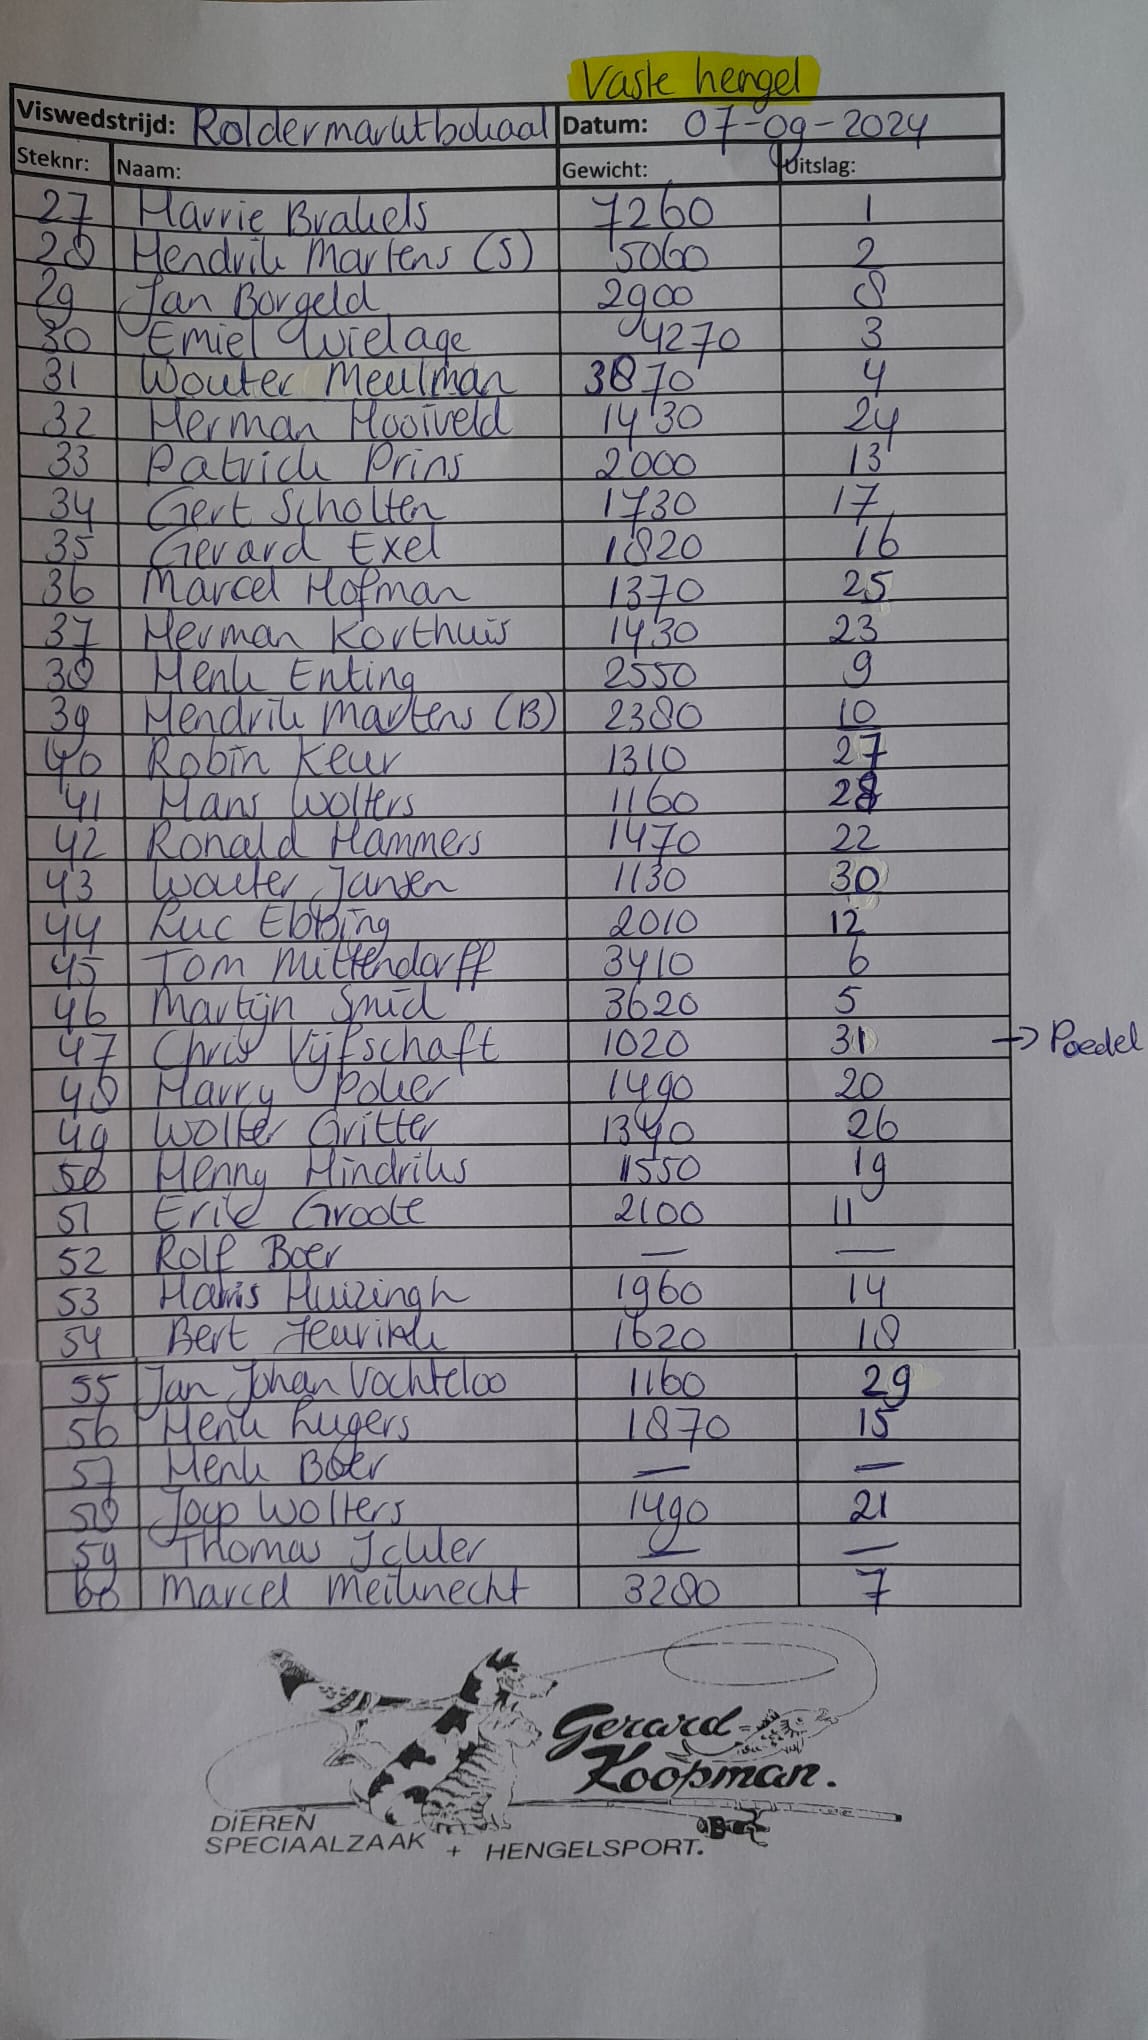 Vaste hengel
Viswedstrijd: Roldermarktbokaal Datum: 07-09-2024
Steknr: Naam: Gewicht: Uitslag:
27 Harrie Brakels 7260 1
28 Hendrik Martens (S) 5060 2
29 Jan Borgeld 2900 8
30 Emiel Wielage 4270 3
31 Wouter Meulman 3870 4
32 Herman Hooiveld 1430 24
33 Patrick Prins 2000 13
34 Gert Scholten 1730 17
35 Gerard Exel 1820 16
36 Marcel Hofman 1370 25
37 Herman Korthuis 1430 23
38 Henk Enting 2550 9
39 Hendrik Martens (B) 2380 10
40 Robin Keur 1310 27
41 Hans Wolters 1160 28
42 Ronald Hammers 1470 22
43 Wouter Jansen 1130 30
44 Luc Ebbing 2010 12
45 Tom Mittendorff 3410 6
46 Martijn Smid 3620 5
47 Chris Vijfschaft 1020 31 → Poedel
48 Harry Poker 1490 20
49 Wolter Gritter 1340 26
50 Henny Hindriks 1550 19
51 Erik Groote 2100 11
52 Rolf Boer — —
53 Hans Huizingh 1960 14
54 Bert 1620 18
55 Jan Johan Vochteloo 1160 29
56 Henk Lugers 1870 15
57 Henk Boer — —
58 Jaap Wolters 1490 21
59 Thomas — —
60 Marcel Meiknecht 3280 7
Gerard
Koopman.
DIEREN
SPECIAALZAAK + HENGELSPORT.